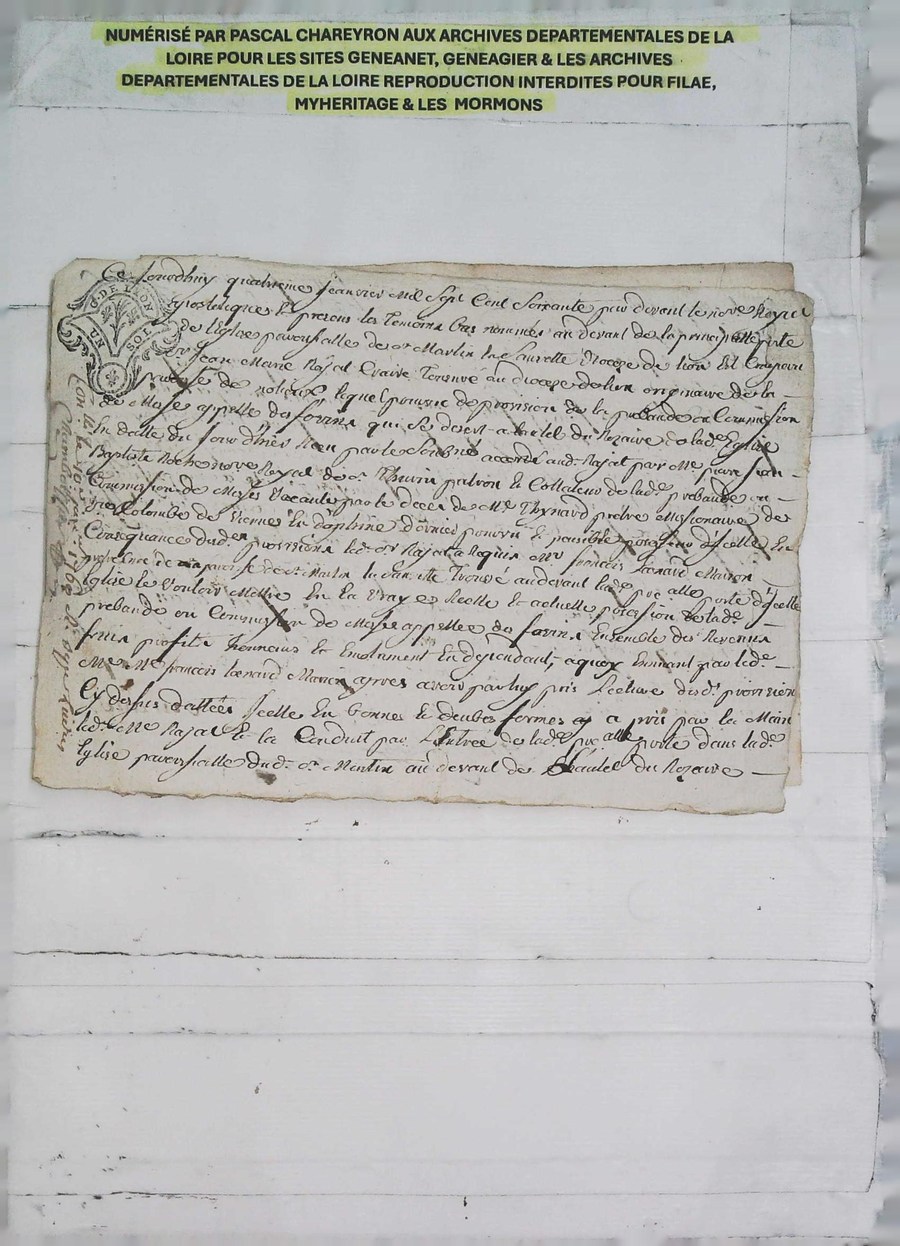 NUMÉRISÉ PAR PASCAL CHAREYRON AUX ARCHIVES DEPARTEMENTALES DE LA
LOIRE POUR LES SITES GENEANET, GENEAGIER & LES ARCHIVES
DEPARTEMENTALES DE LA LOIRE REPRODUCTION INTERDITES POUR FILAE,
MYHERITAGE & LES MORMONS
Ce Jourdhuy quatrieme Jeanvier Mil Sept Cent Soixante par devant le nore Royal
apostolique & presens les Temoins bas nommés au devant de la principalle porte
de l'Eglise parroissialle de st Martin la Sauvette Diocese de Lion Est Comparu
sr Jean Marie Rajat Clair Tonsuré au diocese de Lion originaire de la
paroisse de lequel pourvu de provision de la prebande ou Commission
de Messe appellée des forins qui se desert a lautel du Rozaire de lade Eglise
En datte du Jour d'hier accordé aud. Rajat par Me pierre Jean
Baptiste Roche nore Royal de st Thurin patron & Collateur de lade prebande ou
Commission de Messe Vacante par le deces de Me Thynard pretre Missionaire de
Ste Colombe de Vienne En dauphiné dernier pourvu & paisible possesseur d'icelle En
Consequance dud. provisions led. sr Rajat a Requis Mr francois
de st Martin la Sauvette Trouvé au devant lade ppalle porte d'icelle
Eglise le Vouloir Mettre En la Vraye Reelle & actuelle possession de lade
prebande ou Commission de Messe appellée des forins Ensemble des Revenus
fruis profits honneurs & Emolument En dependant, a quoy par led.
Me francois apres avoir par luy pris Lecture desd. provision
Cy dessus dattées Icelle En bonnes & deubes formes a pris par la Main
led. Me Rajat & la Conduit par L'Entrée de lade ppalle porte dans lade
Eglise parroissialle dud. st Martin au devant de Lhautel du Rozaire
G. DE LYON
UN SOL